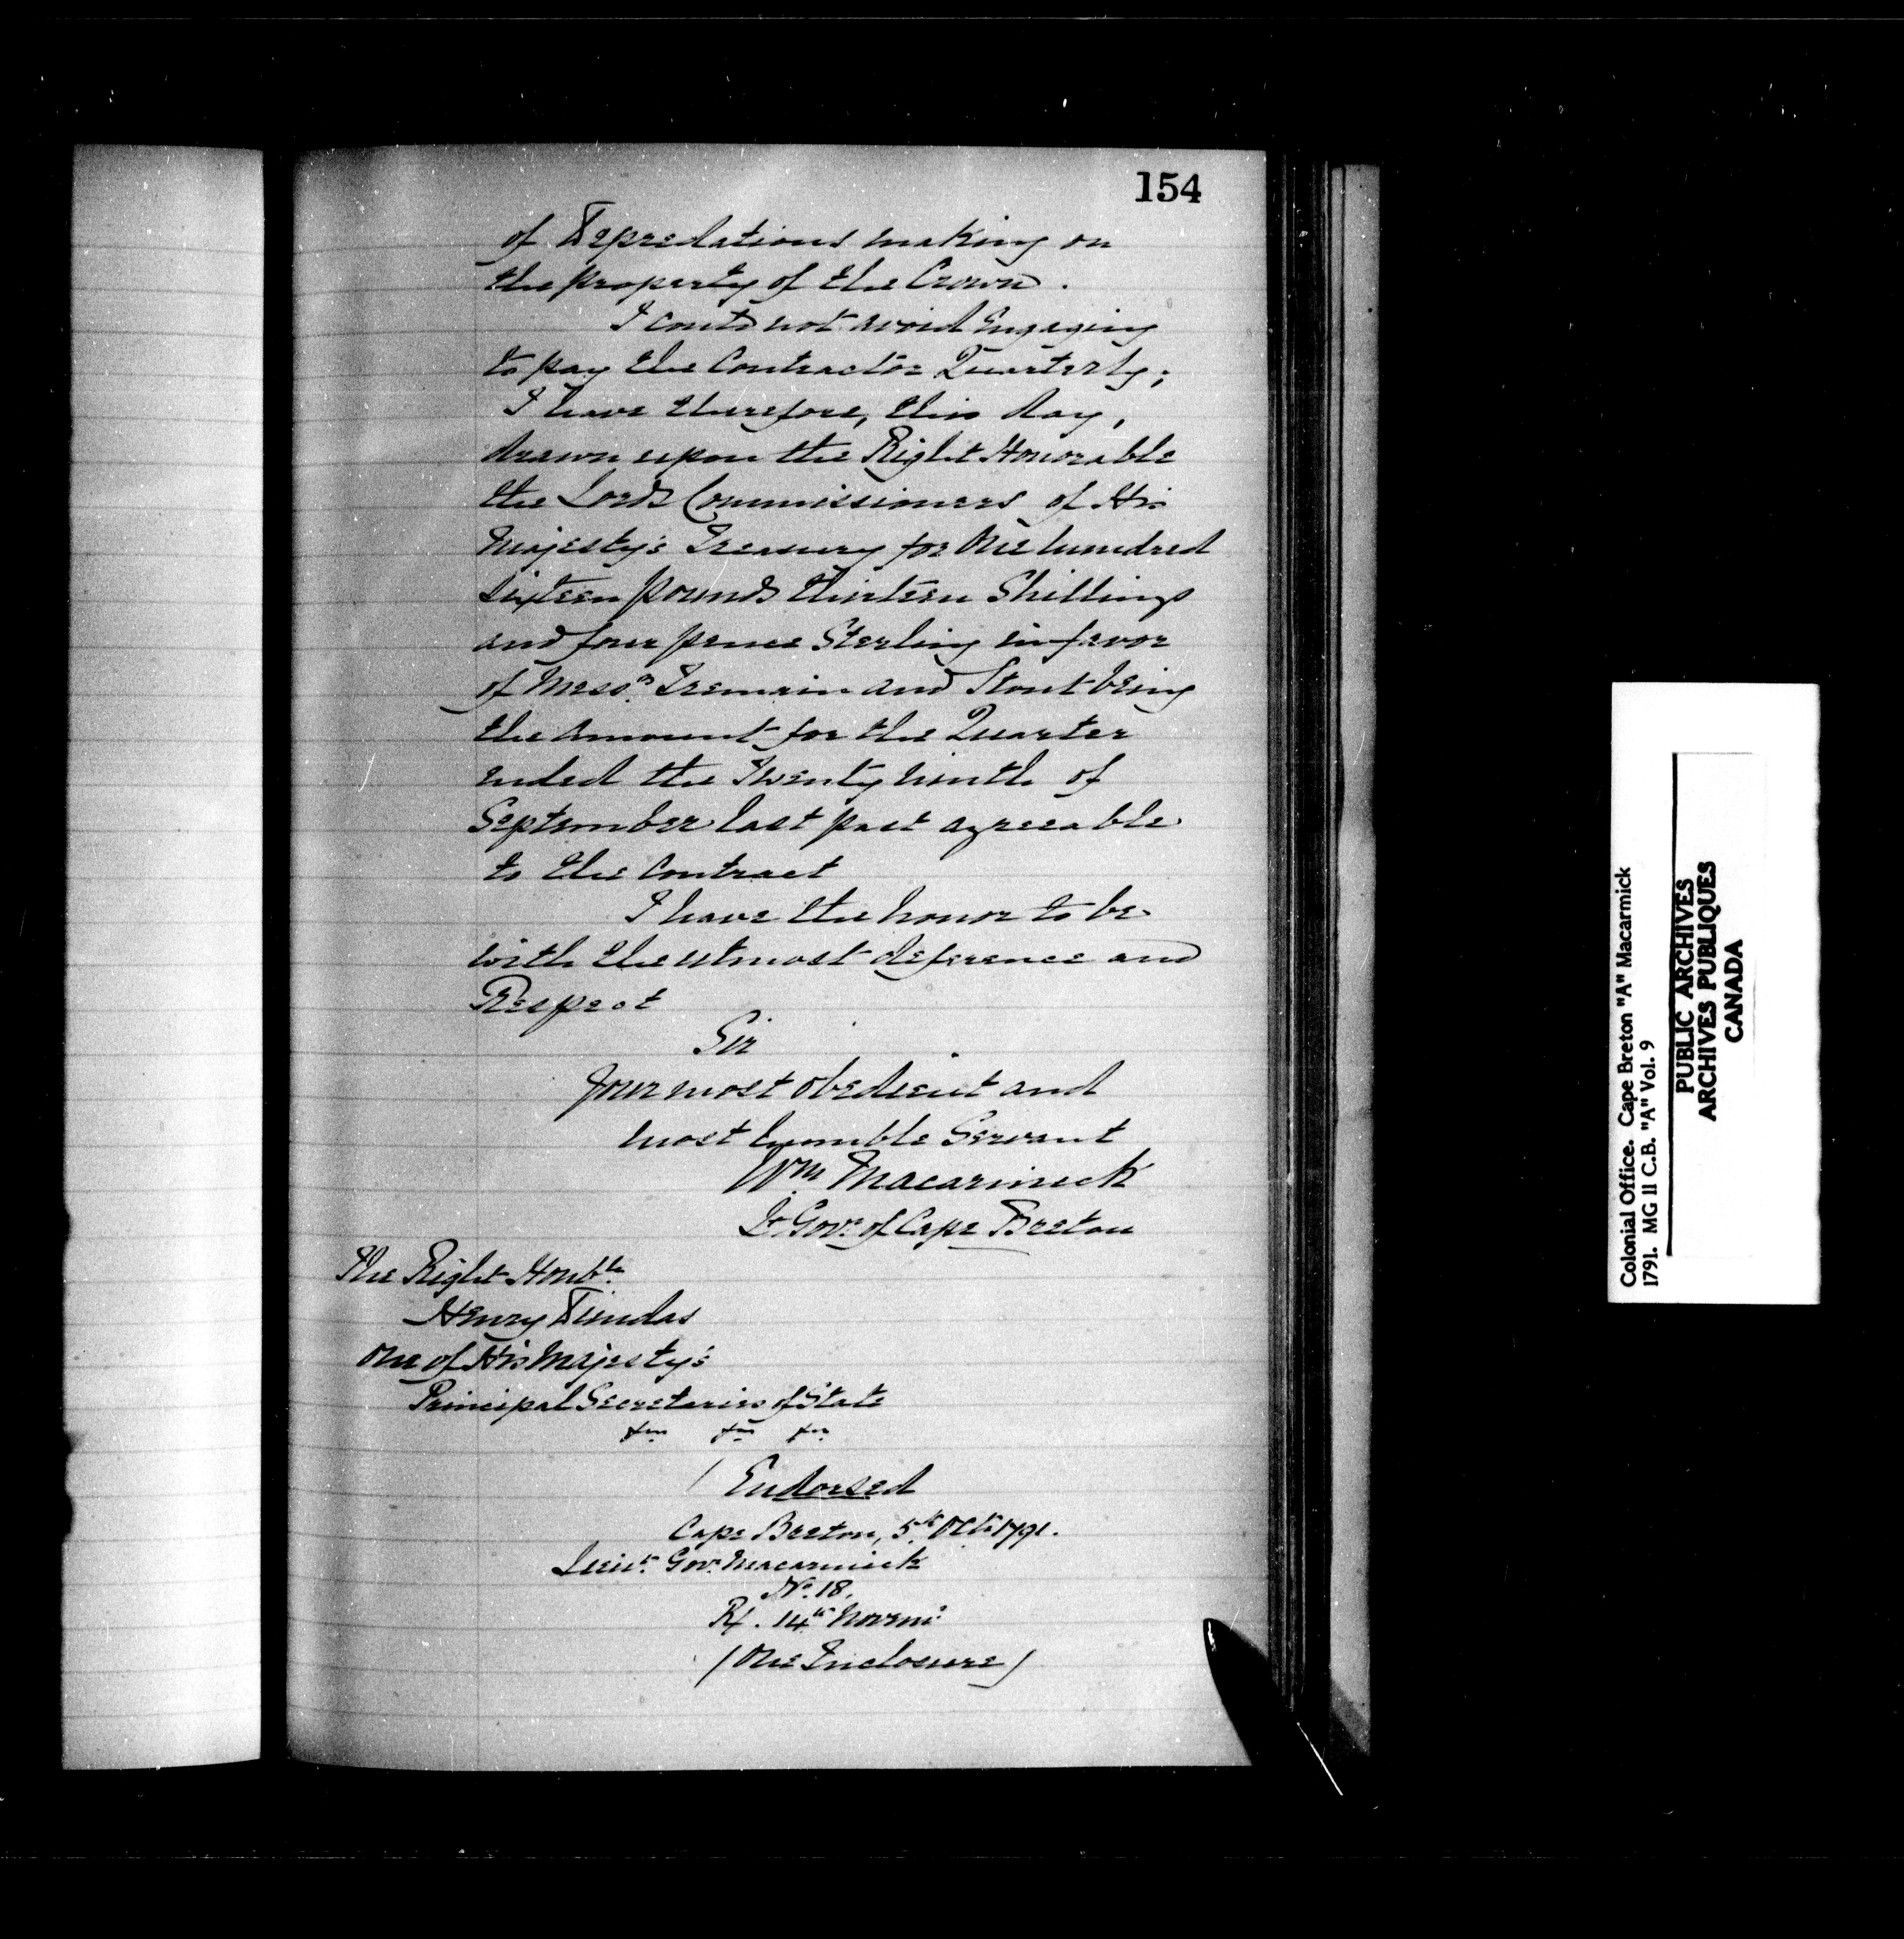 154
of Depredations making on
the property of the Crown.
I could not avoid Engaging
to pay the Contractor Quarterly;
I have therefore, this day,
drawn upon the Right Honorable
the Lords Commissioners of His
Majesty's Treasury for One hundred
sixteen pounds thirteen Shillings
and four pence Sterling in favor
of Messrs. Tremain and Stout being
the amount for the Quarter
ended the Twenty ninth of
September last past agreeable
to the contract
I have the honor to be
with the utmost deference and
Respect
Sir
Your most obedient and
most humble Servant
Wm Macarmick
Lt. Govr. of Cape Breton
The Right Honble.
Henry Dundas
One of His Majesty's
Principal Secretaries of State
Endorsed
Cape Breton, 5th Octr. 1791.
Lieut. Govr. Macarmick
No. 18.
Rx. 14th Novemr.
(One Inclosure)
Colonial Office. Cape Breton "A" Macarmick
1791. MG 11 C.B. "A" Vol. 9
PUBLIC ARCHIVES
ARCHIVES PUBLIQUES
CANADA